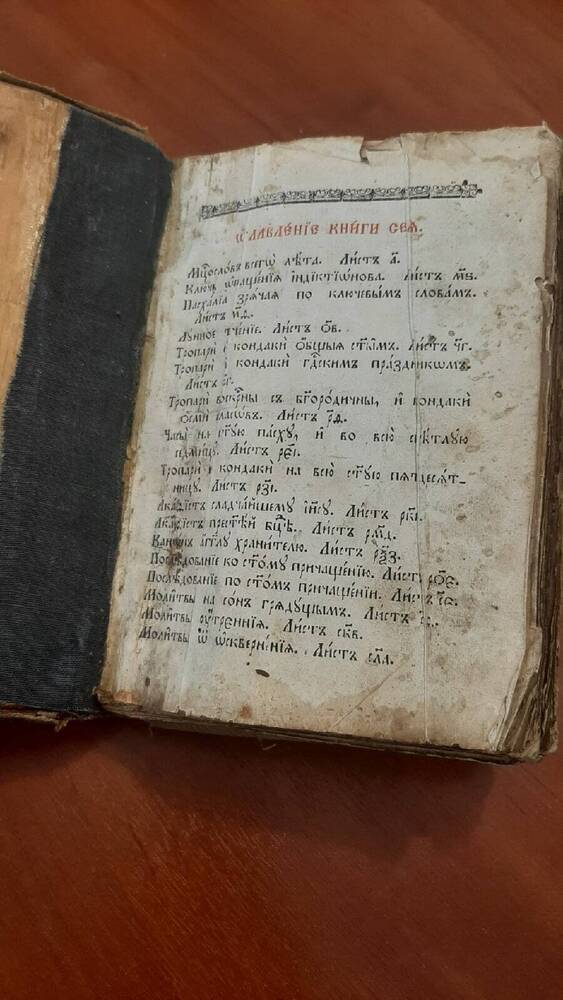 Ѡ҆главле́нїе кни́ги сеѧ̀.
Мцⷭ҇осло́въ всегѡ̀ лѣ́та. Ли́стъ а҃.
Клю́чь ѡ҆браще́нїѧ і҆ндїктїѡ́нова. Ли́стъ
Пасха́лїа зрѧ́чаѧ по ключевы̑мъ слова́мъ.
Ли́стъ
Лꙋ́нное тече́нїе. Ли́стъ ѻ҃в.
Тропарѝ и҆ кондакѝ ѻ҆́бщыѧ ст҃ы̑мъ. Ли́стъ ч҃г.
Тропарѝ и҆ кондакѝ гдⷭ҇скимъ пра́здникѡмъ.
Ли́стъ
Тропарѝ воскрⷭ҇ны съ бг҃оро́дичны, и҆ кондакѝ
ѻ҆смѝ гласѡ́въ. Ли́стъ
Часы̀ на ст҃ꙋ́ю па́схꙋ, и҆ во всю̀ свѣ́тлꙋю
седми́цꙋ. Ли́стъ
Тропарѝ и҆ кондакѝ на всю̀ ст҃ꙋ́ю пѧтдесѧ́т-
ницꙋ. Ли́стъ
А҆ка́ѳїстъ сладча́йшемꙋ і҆и҃сꙋ. Ли́стъ
А҆ка́ѳїстъ прест҃ѣ́й бцⷣѣ. Ли́стъ рм҃д.
Кано́нъ а҆́гг҃лꙋ храни́телю. Ли́стъ рѯ҃з.
Послѣ́дованїе ко ст҃о́мꙋ причаще́нїю. Ли́стъ
Послѣ́дованїе по ст҃о́мъ причаще́нїи. Ли́стъ
Моли̑твы на со́нъ грѧдꙋ́щымъ. Ли́стъ
Моли̑твы ᲂу҆́трєннїѧ. Ли́стъ ск҃в.
Моли̑твы ѿ ѡ҆скверне́нїѧ. Ли́стъ сл҃а.